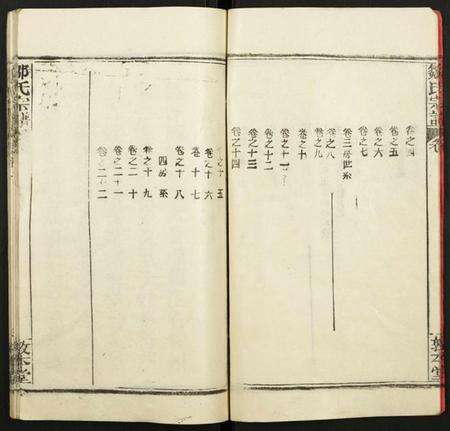 鄒氏宗譜 卷
卷之四
卷之五
卷之六
卷之七
卷三房世系
卷之八
卷之九
卷之十
卷之十一
卷之十二
卷之十三
卷之十四
之十五
卷之十六
卷十七
卷之十八
四房系
卷之十九
卷之二十
卷之二十一
卷之二十二
敦本堂
鄒氏宗譜
敦本堂